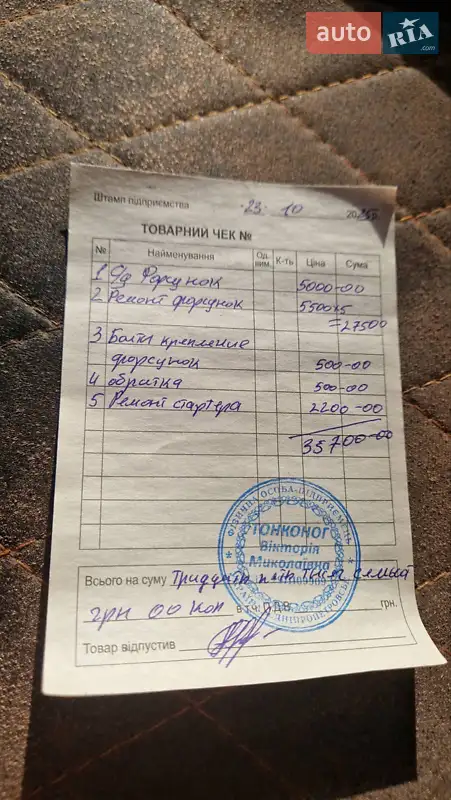 auto RIA .com
Штамп підприємства 23 10 20 25
ТОВАРНИЙ ЧЕК №
№ Найменування Од. вим. К-ть Ціна Сума
1 С/у Форсунок 5000-00
2 Ремонт форсунок 5500х5
=27500
3 Болты крепление
форсунок 500-00
4 обратка 500-00
5 Ремонт стартера 2200-00
35700-00
ФІЗИЧНА ОСОБА-ПІДПРИЄМЕЦЬ
ТОНКОНОГ
Вікторія
Миколаївна
Всього на суму Тридцять п'ять тисяч сімсот
грн 00 коп в т.ч. ПДВ грн.
Товар відпустив